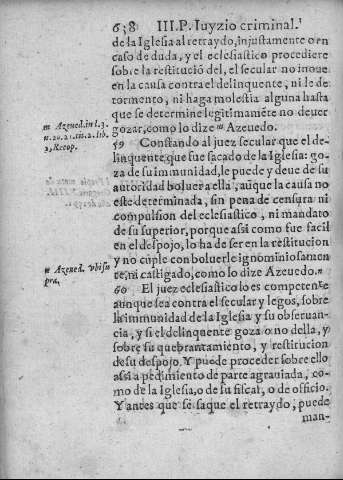 638 III.P. Iuyzio criminal.
de la Iglesia al retraydo, injustamente o en
caso de duda, y el eclesiastico procediere
sobre la restituciõ del, el secular no inoue
en la causa contra el delinquente, ni le de
tormento, ni haga molestia alguna hasta
que se determine legitimamẽte no deuer
gozar, como lo dize m Azeuedo.
m Azeued. in l. 3.
n. 20. 21. tit. 2. lib.
3, Recop.
59 Constando al juez secular que el de-
linquente que fue sacado de la Iglesia: go-
za de su immunidad, le puede y deue de su
autoridad boluer a ella, aũque la causa no
este determinada, sin pena de censura ni
compulsion del eclesiastico, ni mandato
de su superior, porque assi como fue facil
en el despojo, lo ha de ser en la restitucion
y no cuple con boluerle ignominiosamen
te, ni castigado, como lo dize Azeuedo. n
n Azeued. vbi su
pra,
60 El juez eclesiastico lo es competente
aunque sea contra el secular y legos, sobre
la immunidad de la Iglesia y su obseruan-
cia, y si el delinquente goza o no della, y
sobre su quebrantamiento, y restitucion
de su despojo. Y puede proceder sobre ello
assi a pedimiento de parte agrauiada, co-
mo de la Iglesia, o de su fiscal, o de officio.
Y antes que se saque el retraydo, puede
man-